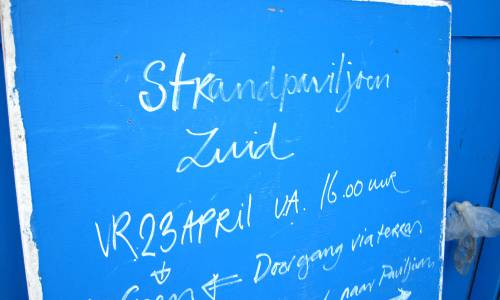 Strandpaviljoen
Zuid
VR 23 APRIL VA. 16.00 uur
Doorgang via terras
open ← naar Paviljoen